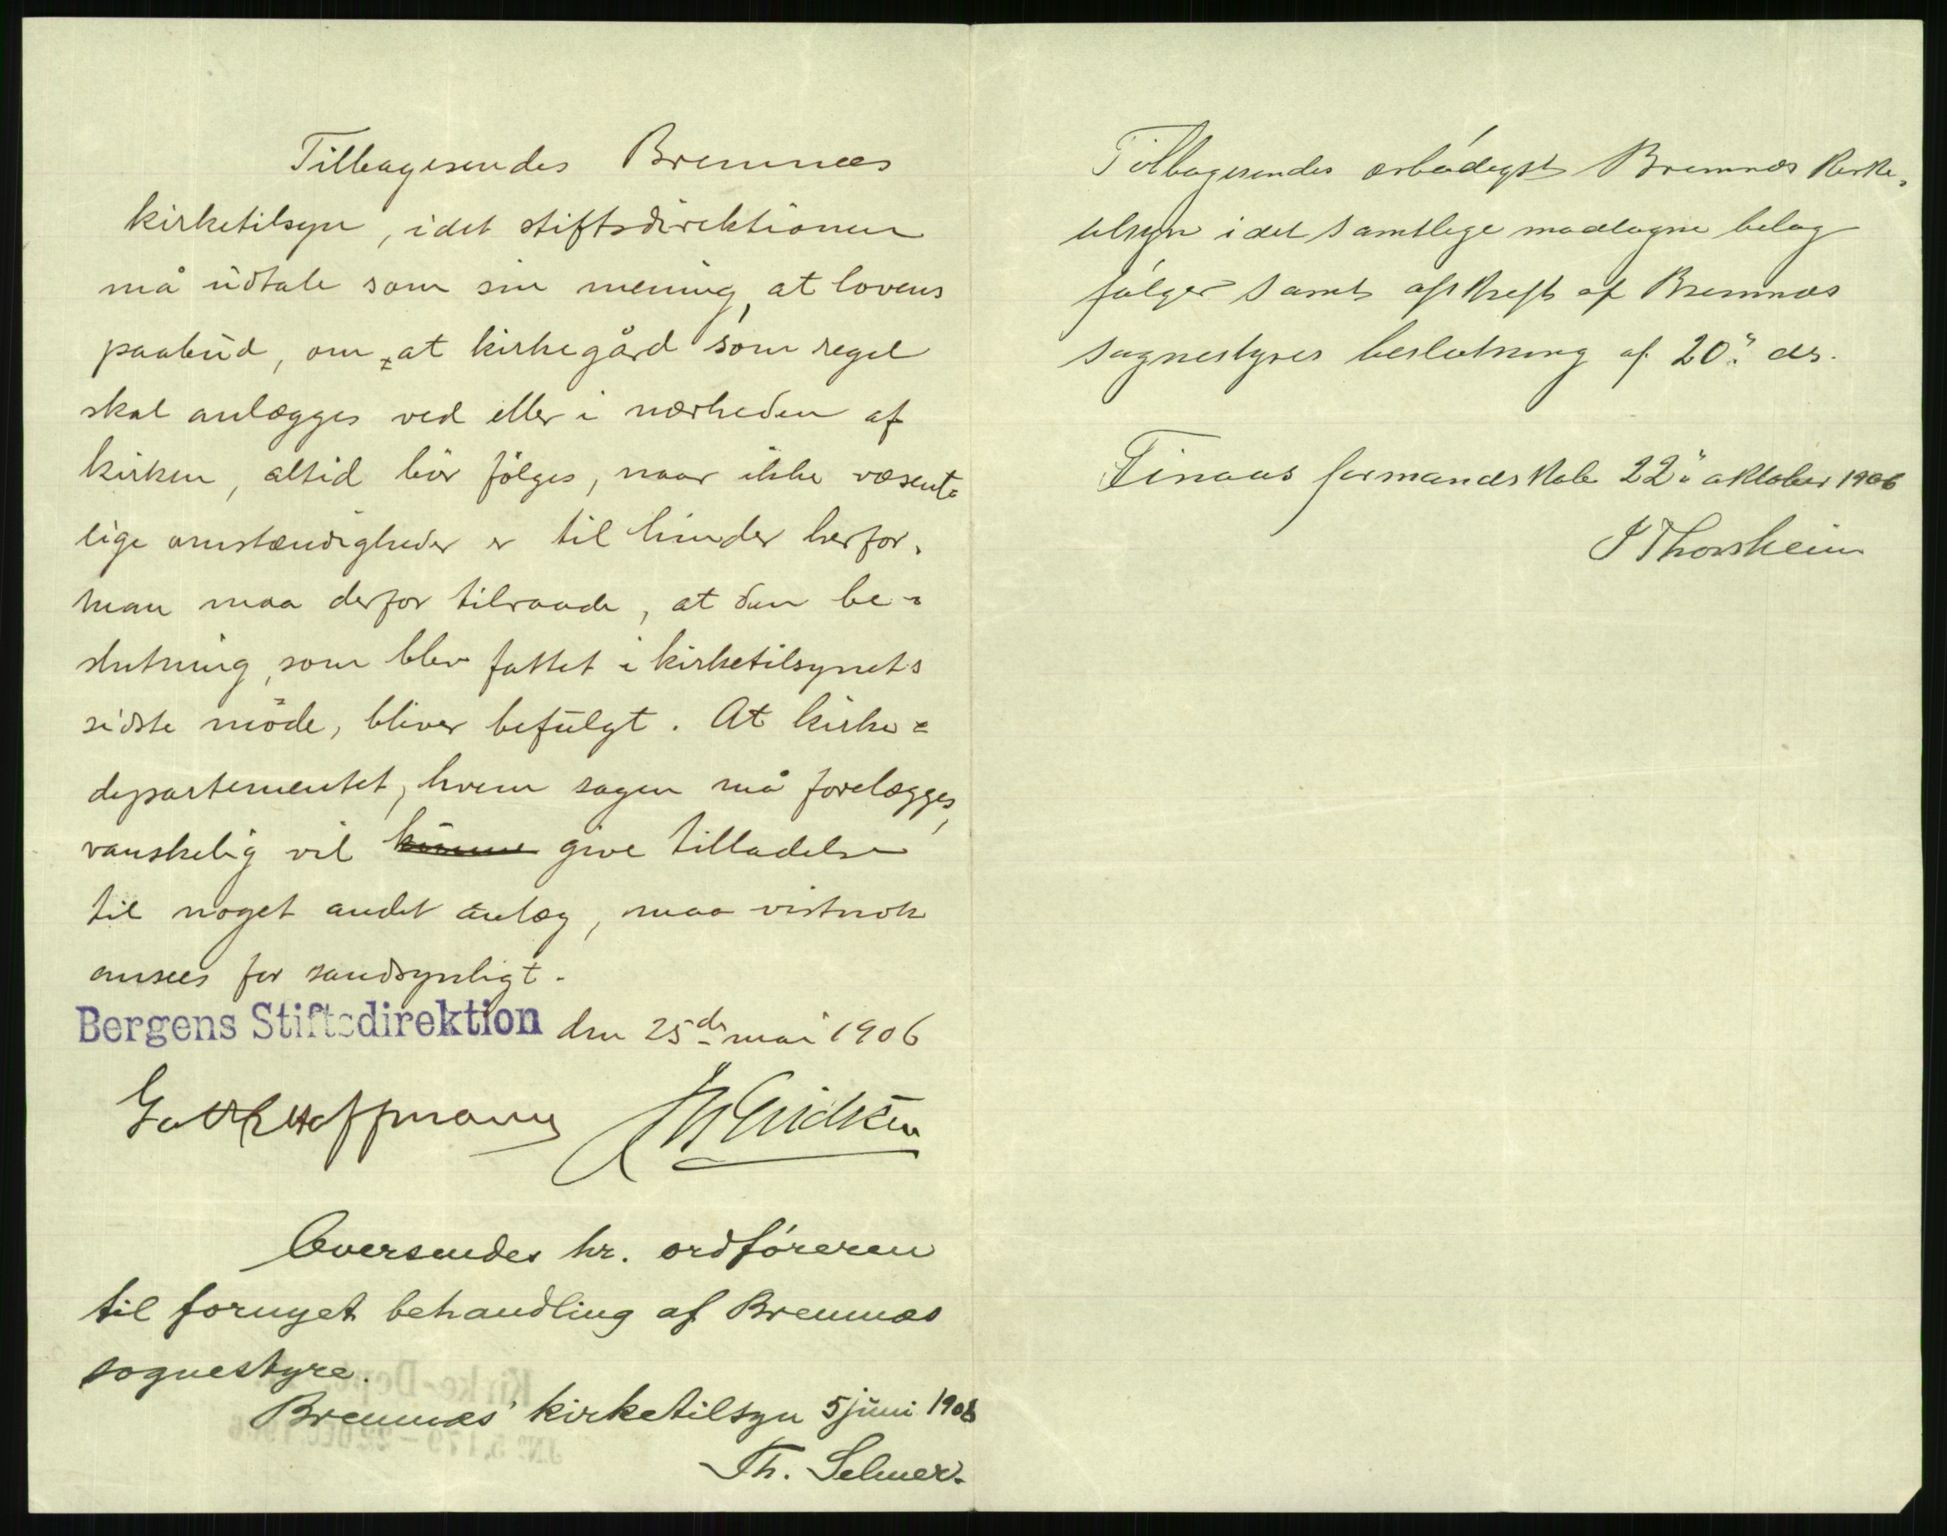 Tilbagesendes Bremnæs
kirketilsyn, idet stiftsdirektionen
må udtale som sin mening, at lovens
paabud, om at kirkegård som regel
skal anlægges ved eller i nærheden af
kirken, altid bör fölges, naar ikke væsent=
lige omstændigheder er til hinder herfor.
Man maa derfor tilraade, at den be-
slutning, som blev fattet i kirketilsynets
sidste möde, bliver befulgt. At kirke=
departementet, hvem sagen må forelægges,
vanskelig vil kunne give tilladelse
til noget andet anlæg, maa vistnok
ansees for sandsynligt.
Bergens Stiftsdirektion den 25de mai 1906
Hoffmann J W Eriksen
Oversendes hr. ordföreren
til fornyet behandling af Bremnæs
sognestyre.
Bremnæs kirketilsyn 5 juni 1906
Th. Selmer.
Kirke-Dep
JNo 5,179 - 22 DEC 1906
Tilbagesendes ærbödigst Bremnæs kirke-
tilsyn idet samtlige modtagne belag
fölger samt afskrift af Bremnæs
sognestyres beslutning af 20" ds.
Finaas formandskab 22" oktober 1906
J Thorsheim